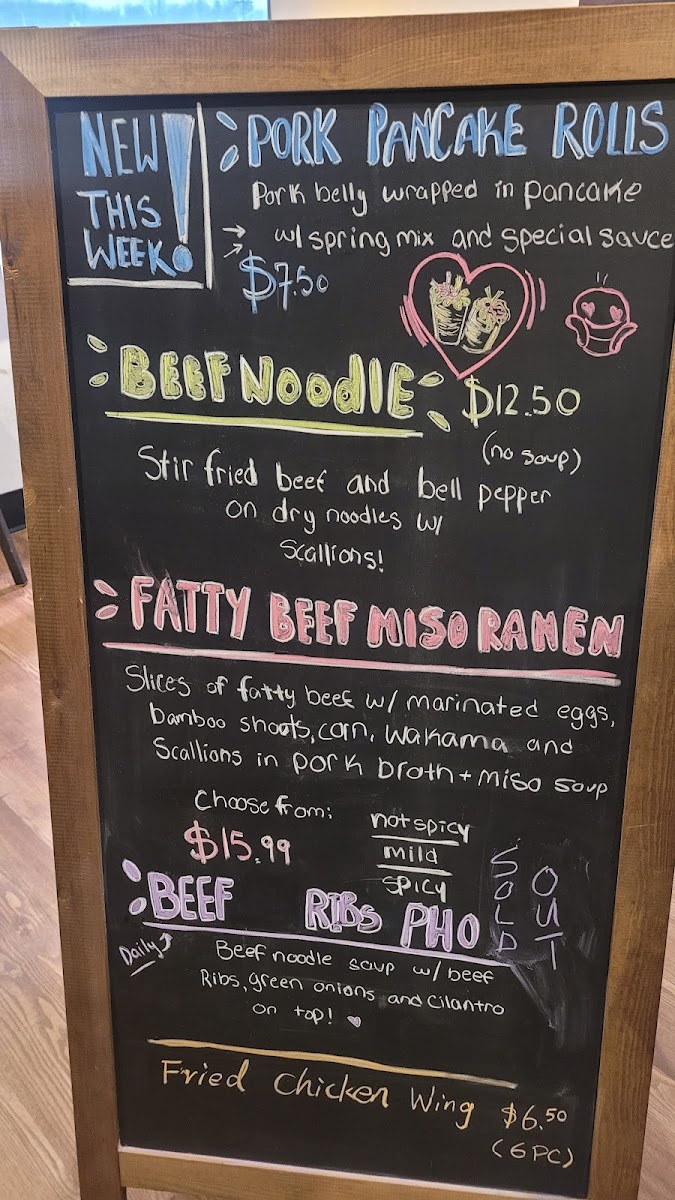 NEW! THIS WEEK
PORK PANCAKE ROLLS
Pork belly wrapped in pancake
w/ spring mix and special sauce
$7.50
BEEF NOODLE $12.50
(no soup)
Stir fried beef and bell pepper
on dry noodles w/
Scallions!
FATTY BEEF MISO RAMEN
Slices of fatty beef w/ marinated eggs,
bamboo shoots, corn, wakama and
Scallions in pork broth + miso soup
Choose from:
not spicy
mild
spicy
$15.99
BEEF RIBS PHO
SOLD OUT
Daily
Beef noodle soup w/ beef
Ribs, green onions and cilantro
on top! ♥
Fried chicken wing $6.50
(6PC)